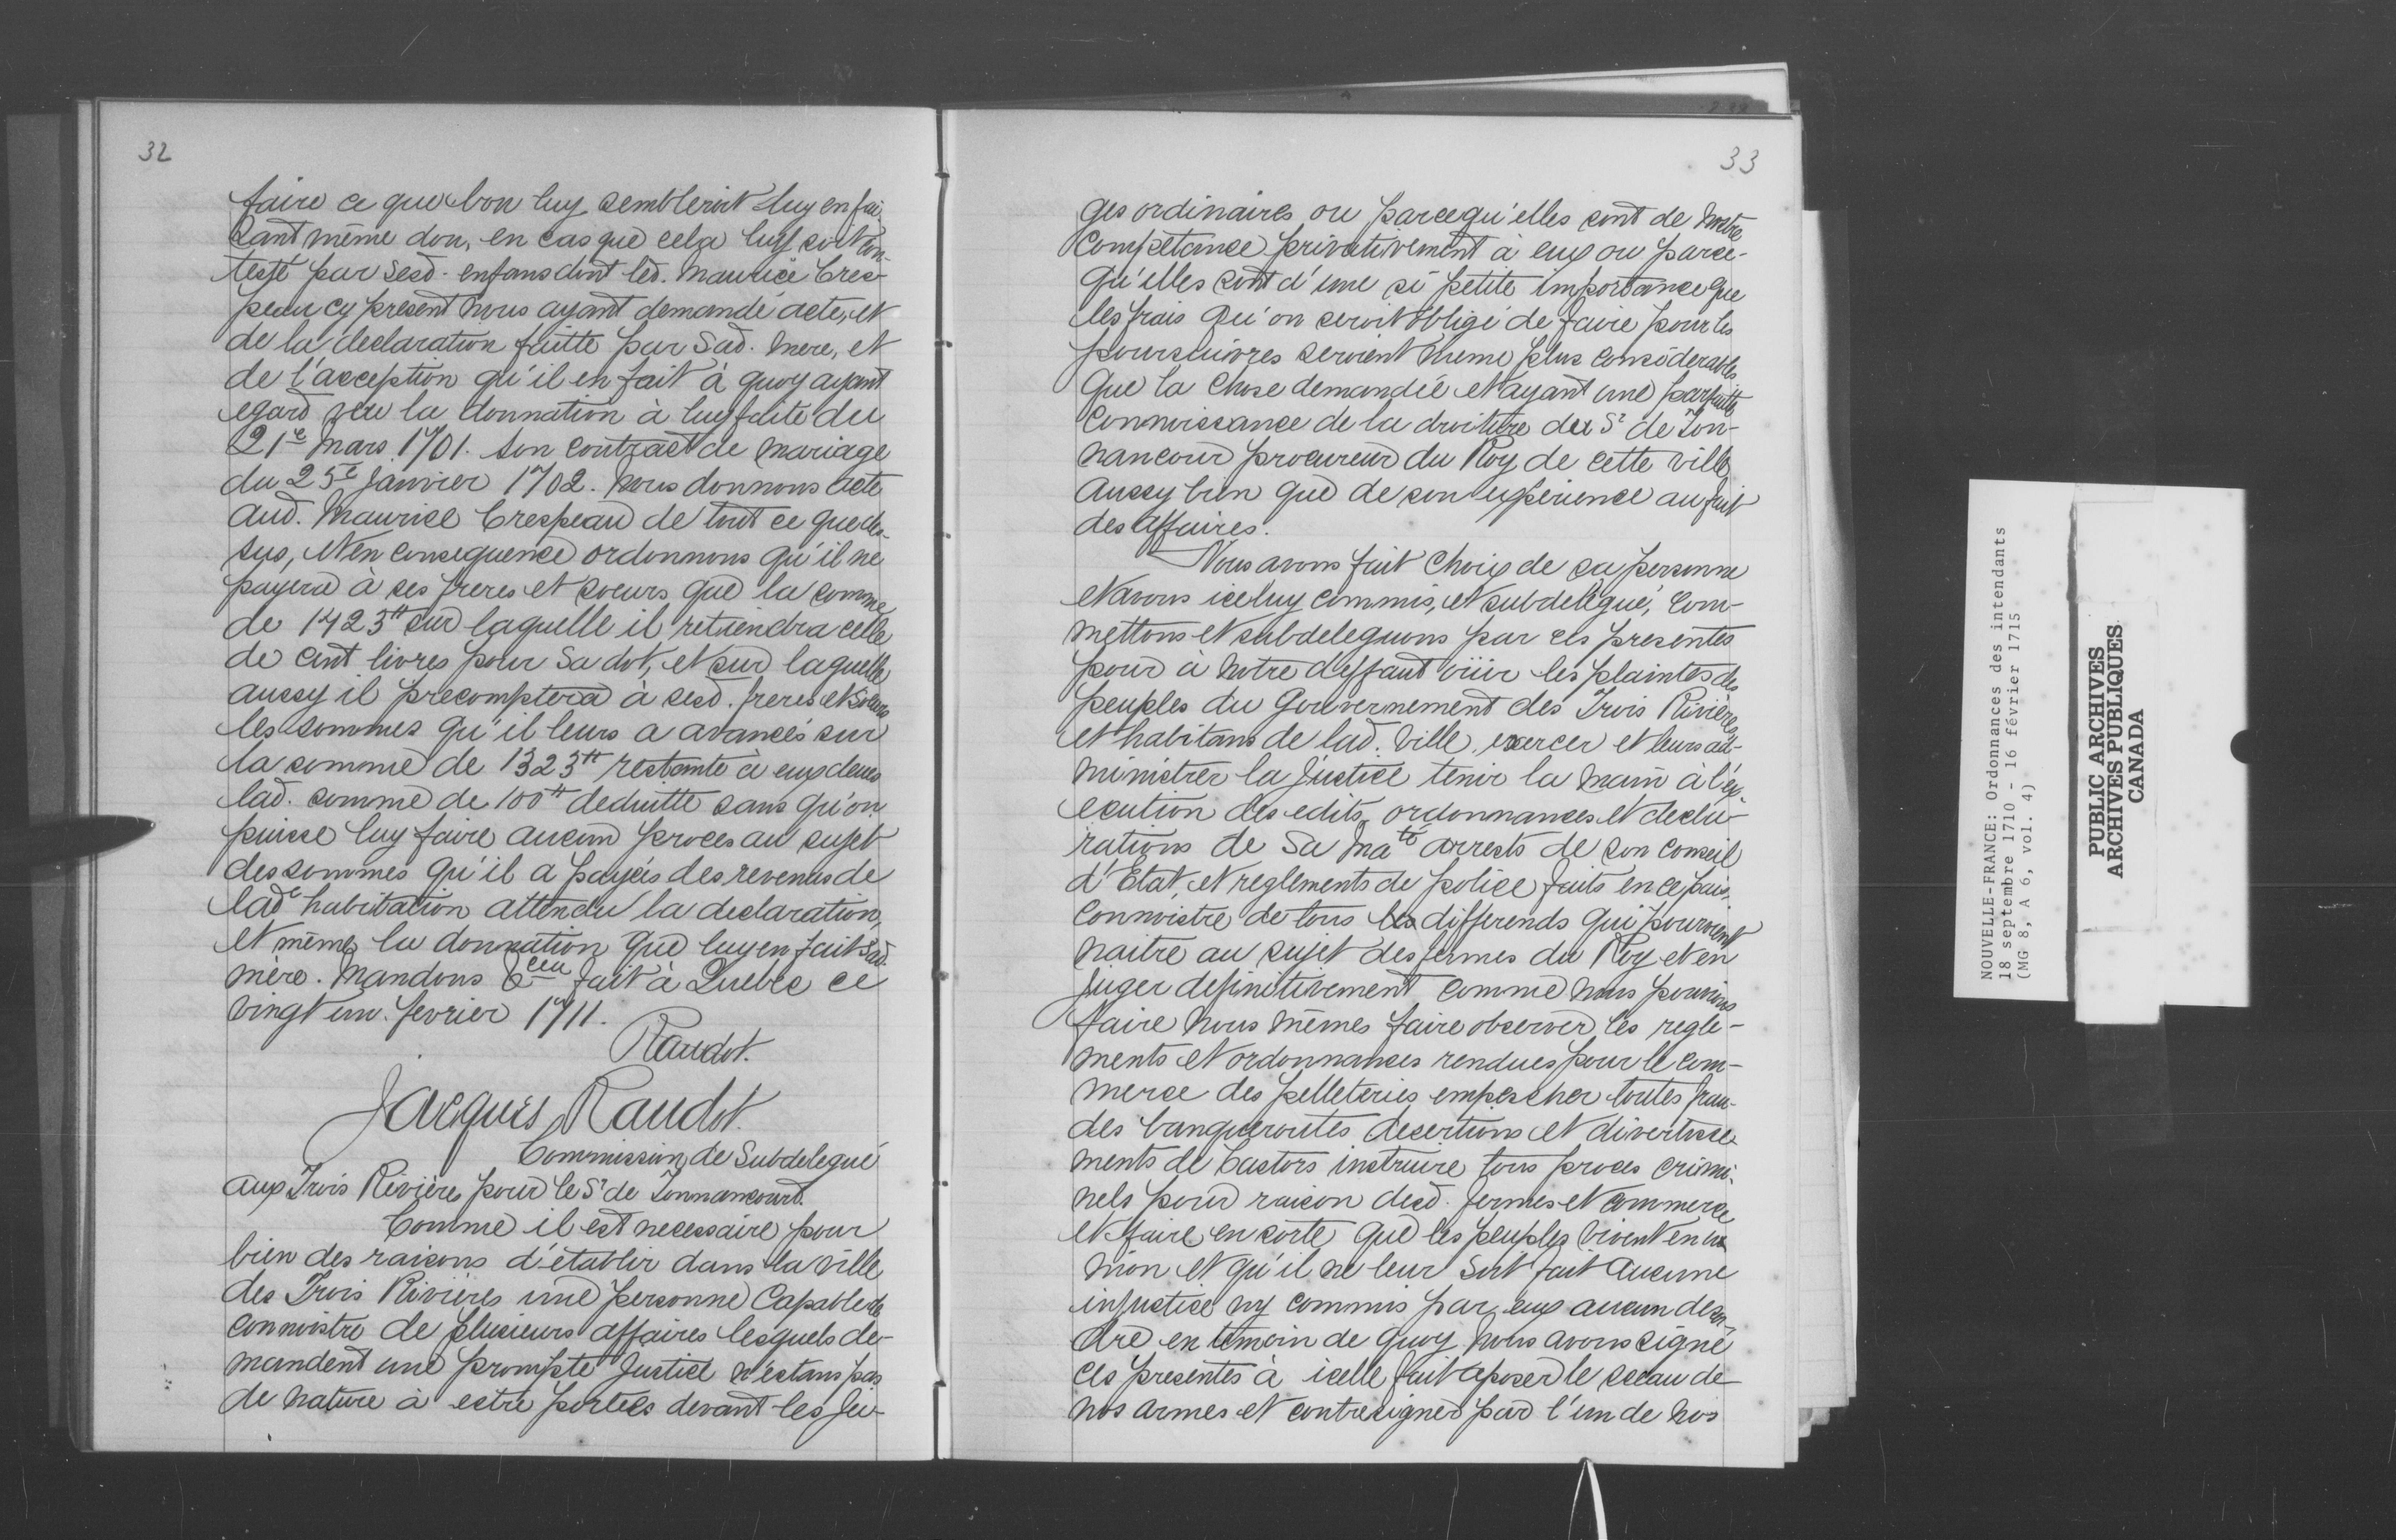 32
faire ce que bon luy sembleroit luy en fai-
sant même don, en cas que cela luy soit con-
testé par sesd. enfans dont led. Maurice Cres-
peau cy present nous ayant demandé acte, et
de la declaration faitte par Sad. mere, et
de l'acception qu'il en fait à quoy ayant
egard veu la donnation à luy faite du
21e Mars 1701. son contract de mariage
du 25e Janvier 1702. Nous donnons acte
aud. Maurice Crespeau de tout ce que des-
sus, et en consequence ordonnons qu'il ne
payera à ses freres et soeurs que la somme
de 1423tt sur laquelle il retiendra celle
de cent livres pour Sa dot, et sur laquelle
aussy il precomptera à sesd. freres et soeurs
les sommes qu'il leurs a avancés sur
la somme de 1323tt restante à eux deues
lad. somme de 100tt deduitte sans qu'on
puisse luy faire aucun proces au sujet
des sommes qu'il a payés des revenus de
lade habitation attendu la declaration,
et même la donnation que luy en fait Sad.
mère. Mandons &ceu fait à Quebec ce
vingt un. fevrier 1711.
Raudot.
Jacques Raudot.
Commission de Subdelegué
aux Trois Rivières pour le Sr de Tonnancourt.
Comme il est necessaire pour
bien des raisons d'établir dans la ville
des Trois Rivières une personne Capable de
connoistre de plusieurs affaires lesquels de-
mandent une prompte Justice n'estans pas
de nature à estre portées devant les Ju-
33
ges ordinaires ou parcequ'elles sont de nostre
Compétance privativement à eux ou parce-
qu'elles sont d'une si petite importance que
les frais qu'on seroit obligé de faire pour les
poursuivres seroient même plus considerables
que la Chose demandée et ayant une parfaitte
Connoissance de la droiture du Sr de Ton-
nancour procureur du Roy de cette ville
aussy bien que de son expérience au fait
des affaires.
Nous avons fait Choix de sa personne
et avons iceluy commis, et subdelegué, Com-
mettons et subdeleguons par ces presentes
pour à notre deffaut oüir les plaintes des
peuples du Gouvernement des Trois Rivières
et habitans de lad. Ville, exercer et leurs ad-
ministrer la Justice tenir la main à l'ex-
ecution des edits, ordonnances et decla-
rations de Sa Mate arrests de son Conseil
d'Etat, et reglements de police faits en ce pais,
Connoistre de tous les differends qui pourroient
naitre au sujet des fermes du Roy et en
Juger definitivement comme nous pourrions
faire nous mêmes faire observer les regle-
ments et ordonnances rendues pour le com-
merce des pelleteries empescher toutes frau-
des banqueroutes desertions et divertisse-
ments de Castors instruire tous proces crimi-
nels pour raison desd. fermes et commerce
et faire en sorte que les peuples vivent en u-
nion et qu'il ne leur soit fait aucune
injustice ny commis par eux aucun desor-
dre en temoin de quoy nous avons signé
ces presentes à icelle fait aposer le sceau de
nos armes et contresigner par l'un de nos
NOUVELLE-FRANCE: Ordonnances des intendants
18 septembre 1710 - 16 février 1715
(MG 8, A 6, vol. 4)
PUBLIC ARCHIVES
ARCHIVES PUBLIQUES
CANADA